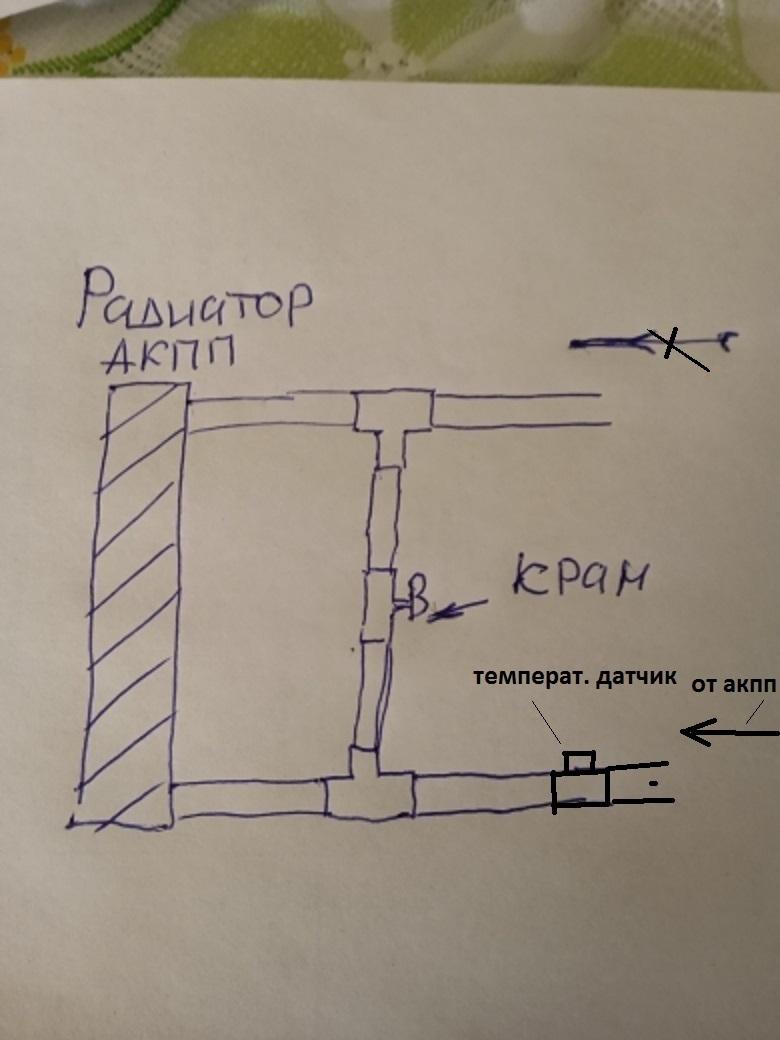 Радиатор
АКПП
кран
температ. датчик
от акпп